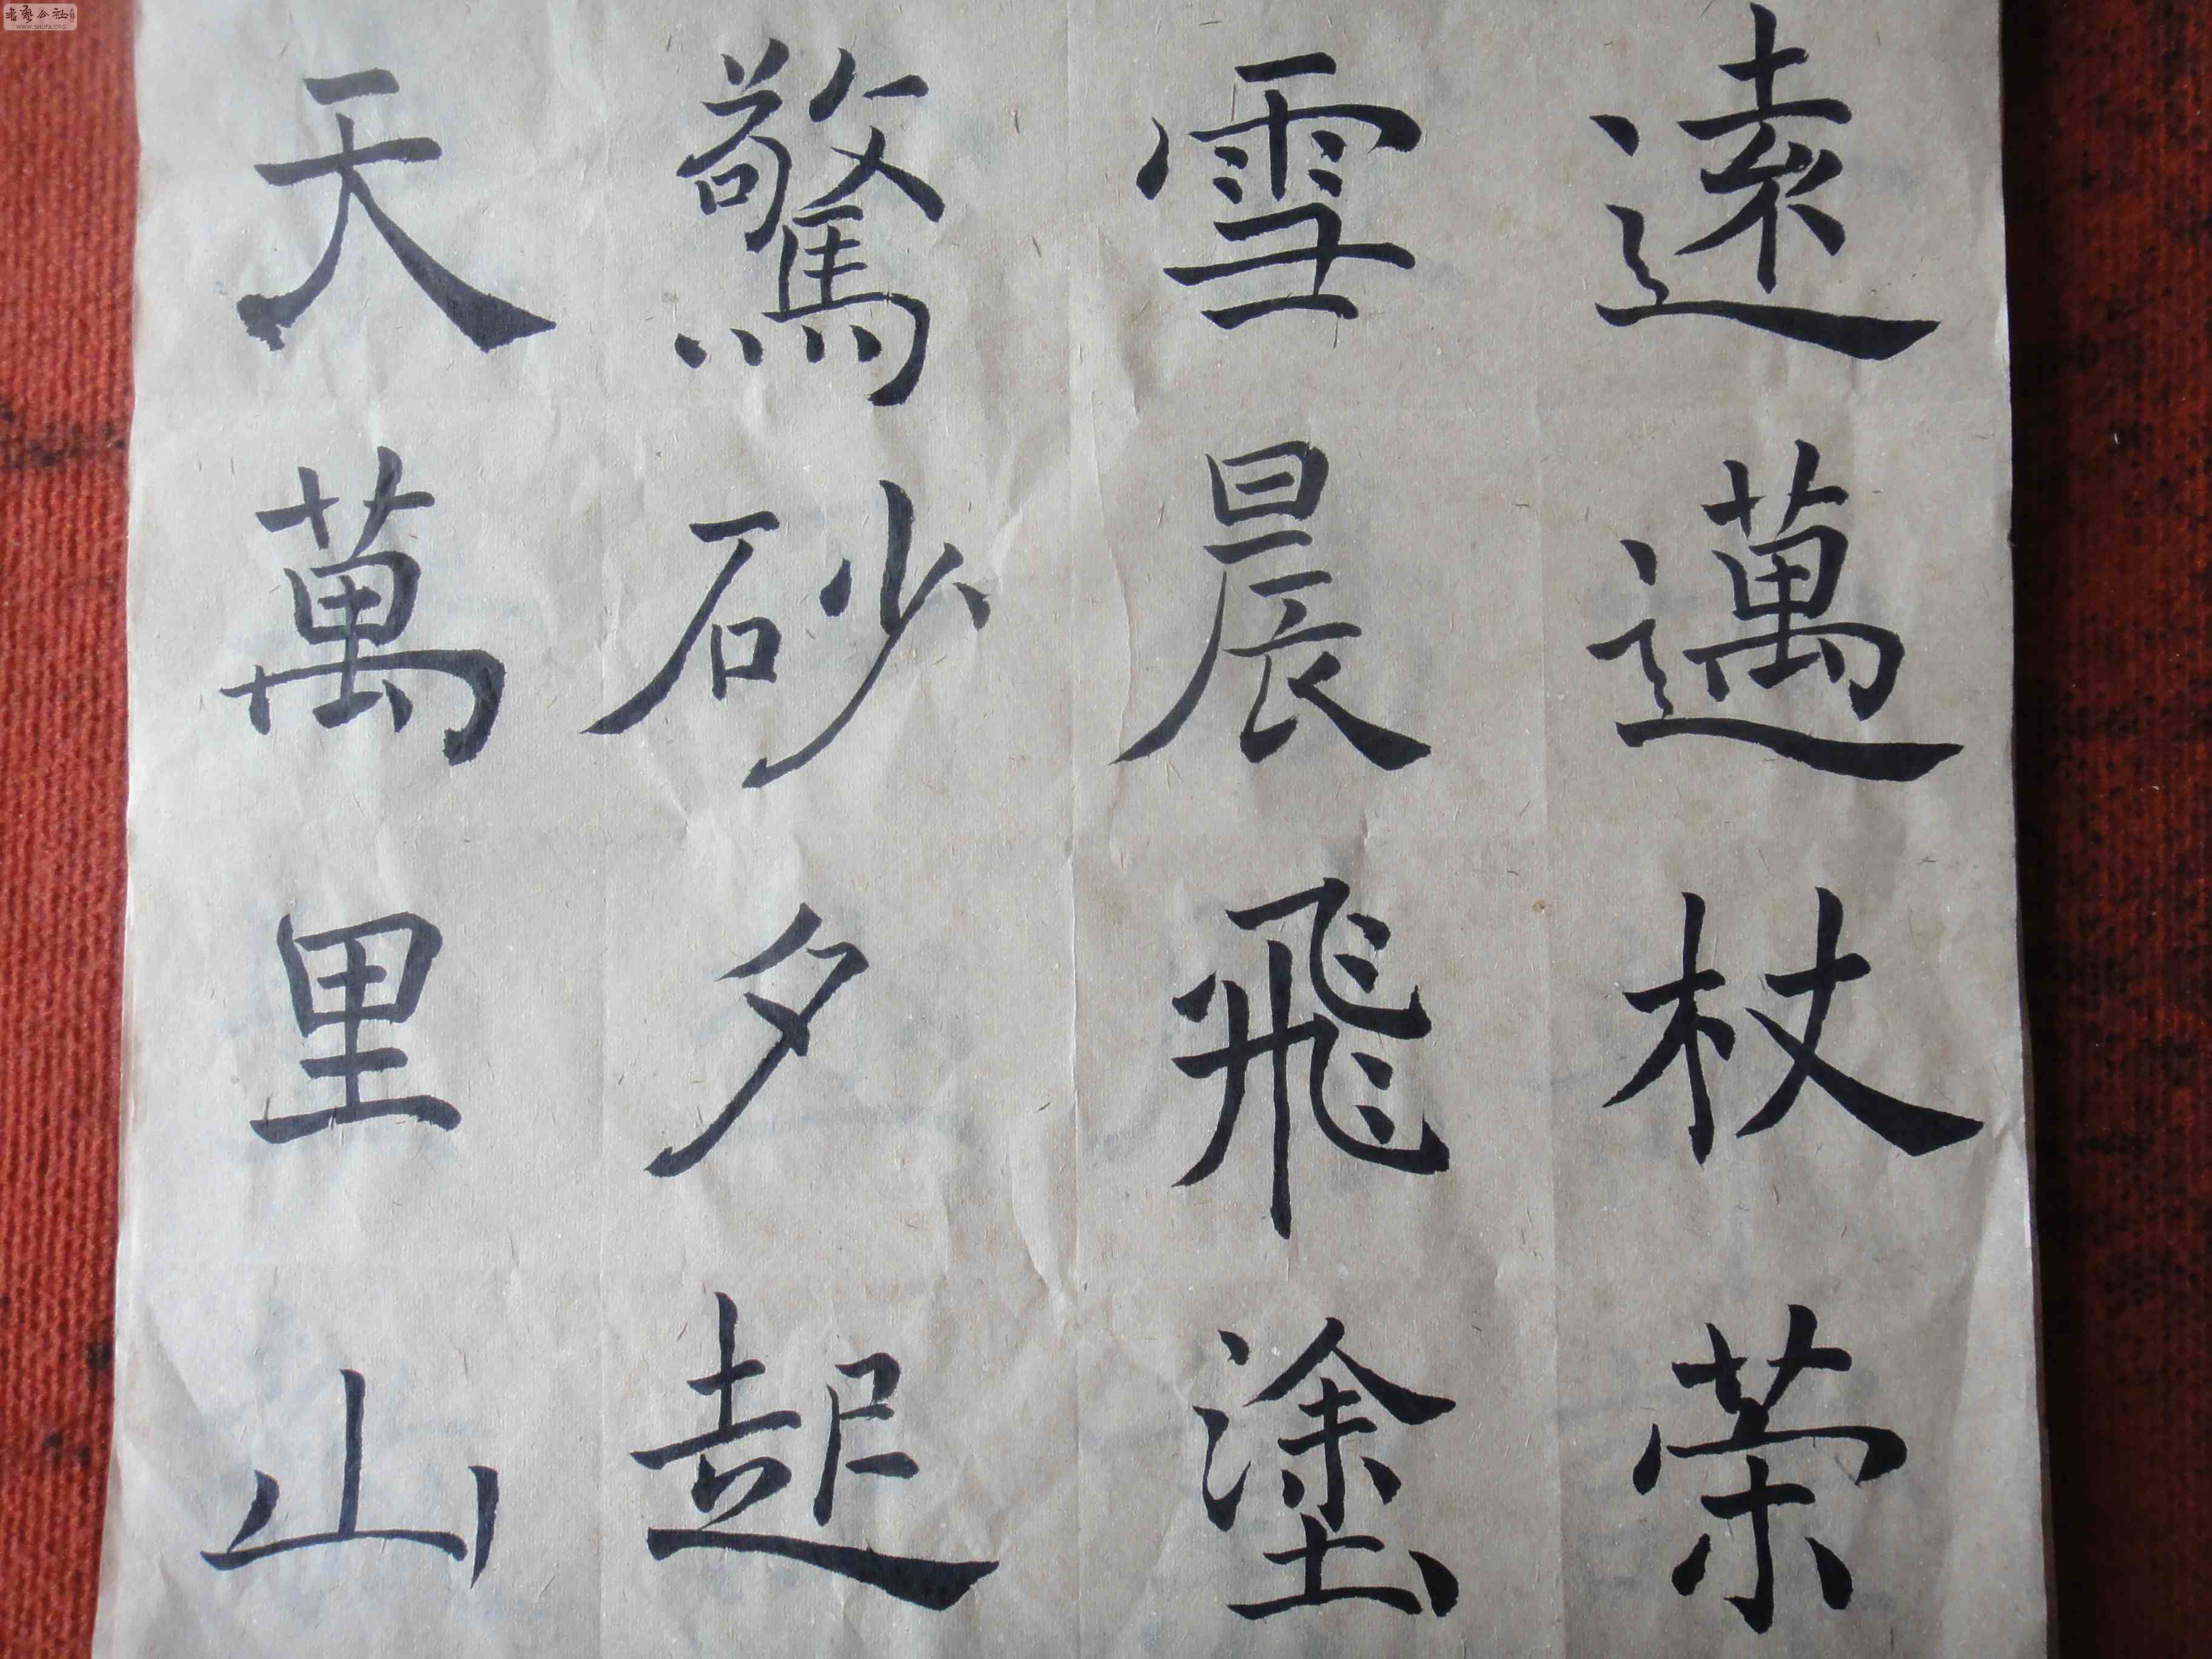 遠邁杖策
雪晨飛塗
驚砂夕起
天萬里山
書藝公社
WWW.SHUFA.ORG